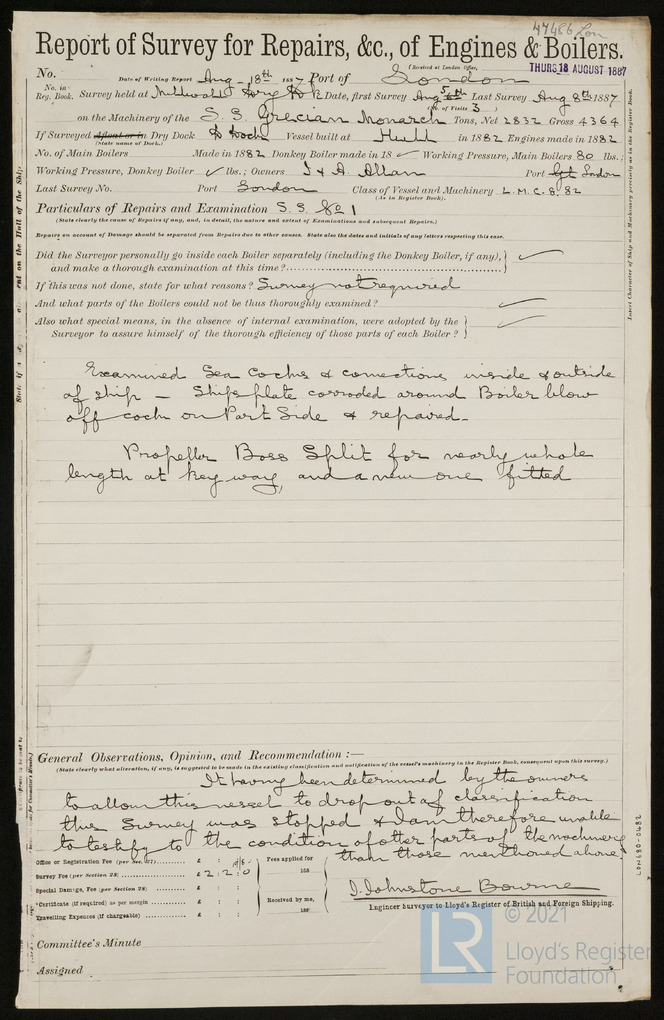 47486 Lon
Report of Survey for Repairs, &c., of Engines & Boilers.
(Received at London Office, THURS 18 AUGUST 1887
No. Date of Writing Report Aug 18th 1887 Port of London
No. in Reg. Book. Survey held at Millwall Date, first Survey Aug 5th Last Survey Aug 8th 1887
(No. of Visits 3)
on the Machinery of the S. S. Grecian Monarch Tons, Net 2832 Gross 4364
If Surveyed Afloat or in Dry Dock D Dock Vessel built at Hull in 1882 Engines made in 1882
(State name of Dock.)
No. of Main Boilers Made in 1882 Donkey Boiler made in 18 ✓ Working Pressure, Main Boilers 80 lbs.;
Working Pressure, Donkey Boiler ✓ lbs.; Owners J & A. Allan Port London
Last Survey No. Port London Class of Vessel and Machinery L.M.C. 8,82
(As in Register Book).
Particulars of Repairs and Examination S. S. No 1
(State clearly the cause of Repairs if any, and, in detail, the nature and extent of Examinations and subsequent Repairs.)
Repairs on account of Damage should be separated from Repairs due to other causes. State also the dates and initials of any letters respecting this case.
Did the Surveyor personally go inside each Boiler separately (including the Donkey Boiler, if any), ✓
and make a thorough examination at this time?
If this was not done, state for what reasons? Survey not required
And what parts of the Boilers could not be thus thoroughly examined?
Also what special means, in the absence of internal examination, were adopted by the
Surveyor to assure himself of the thorough efficiency of those parts of each Boiler?
Examined Sea Cocks & connections inside & outside
of ship — Ships plate corroded around Boiler blow
off cock on Port Side & repaired.
Propeller Boss Split for nearly whole
length at key way, and a new one fitted
General Observations, Opinion, and Recommendation :—
(State clearly what alteration, if any, is suggested to be made in the existing classification and notification of the vessel's machinery in the Register Book, consequent upon this survey.)
It having been determined by the owners
to allow this vessel to drop out of classification
this Survey was stopped & I am therefore unable
to testify to the condition of other parts of the machinery
than those mentioned above.
Office or Registration Fee £ : :
Survey Fee (per Section 28) £ 2 : 2 : 0
Special Damage, Fee (per Section 28) £ : :
*Certificate (if required) as per margin £ : :
Travelling Expences (if chargeable) £ : :
Fees applied for
188
Received by me,
188
J. Johnstone Bourne
Engineer Surveyor to Lloyd's Register of British and Foreign Shipping.
Committee's Minute
Assigned
Insert Character of Ship and Machinery precisely as in the Register Book.
LON680-0482
LR © 2021
Lloyd's Register
Foundation